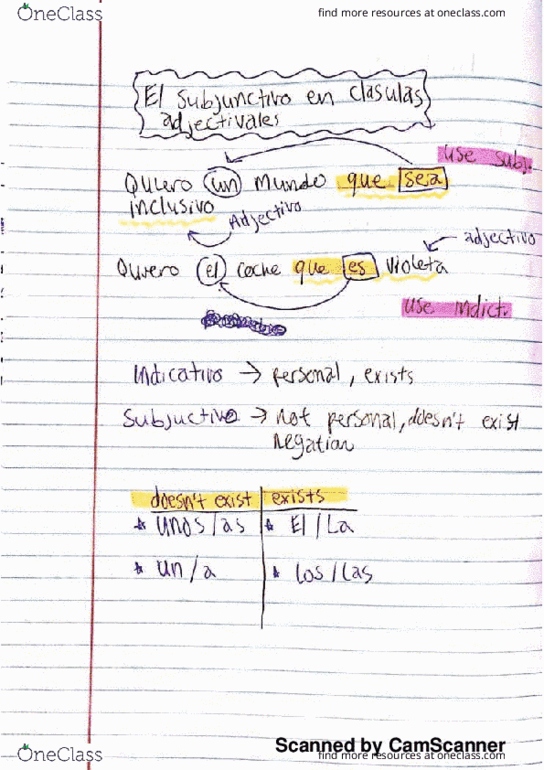 OneClass
find more resources at oneclass.com
El Subjunctivo en clasulas
adjectivales
use subj.
Quiero un mundo que sea
inclusivo
Adjectivo
adjectivo
Quiero el coche que es violeta
use indict.
Indicativo → personal, exists
Subjuctivo → not personal, doesn't exist
negation
doesn't exist exists
* unos/as * El/La
* un/a * los/las
Scanned by CamScanner
OneClass
find more resources at oneclass.com